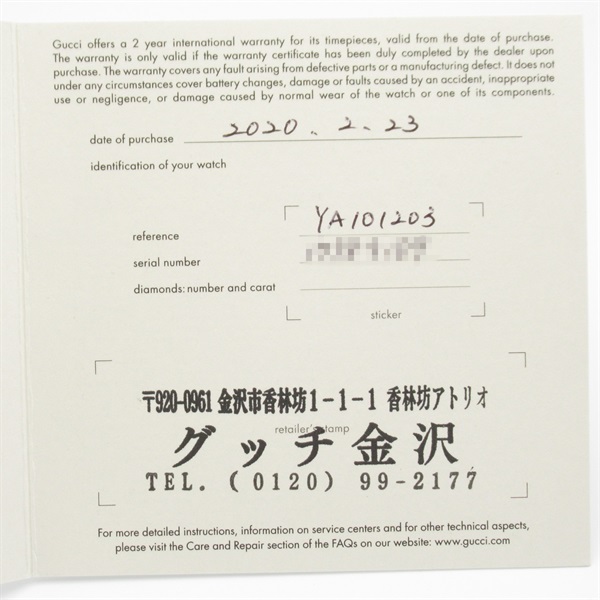 Gucci offers a 2 year international warranty for its timepieces, valid from the date of purchase.
The warranty is only valid if the warranty certificate has been duly completed by the dealer upon
purchase. The warranty covers any fault arising from defective parts or a manufacturing defect. It does not
under any circumstances cover battery changes, damage or faults caused by an accident, inappropriate
use or negligence, or damage caused by normal wear of the watch or one of its components.
date of purchase 2020. 2. 23
identification of your watch
reference YA101203
serial number
diamonds: number and carat
sticker
〒920-0961 金沢市香林坊1-1-1 香林坊アトリオ
retailer's stamp
グッチ金沢
TEL. (0120) 99-2177
For more detailed instructions, information on service centers and for other technical aspects,
please visit the Care and Repair section of the FAQs on our website: www.gucci.com